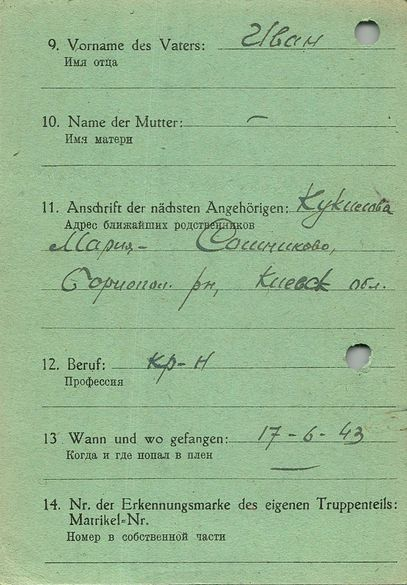 9. Vorname des Vaters: Иван
Имя отца
10. Name der Mutter: –
Имя матери
11. Anschrift der nächsten Angehörigen:
Адрес ближайших родственников
Мария –
рн, Киевск обл.
12. Beruf: кр-н
Профессия
13 Wann und wo gefangen: 17-6-43
Когда и где попал в плен
14. Nr. der Erkennungsmarke des eigenen Truppenteils:
Matrikel-Nr.
Номер в собственной части